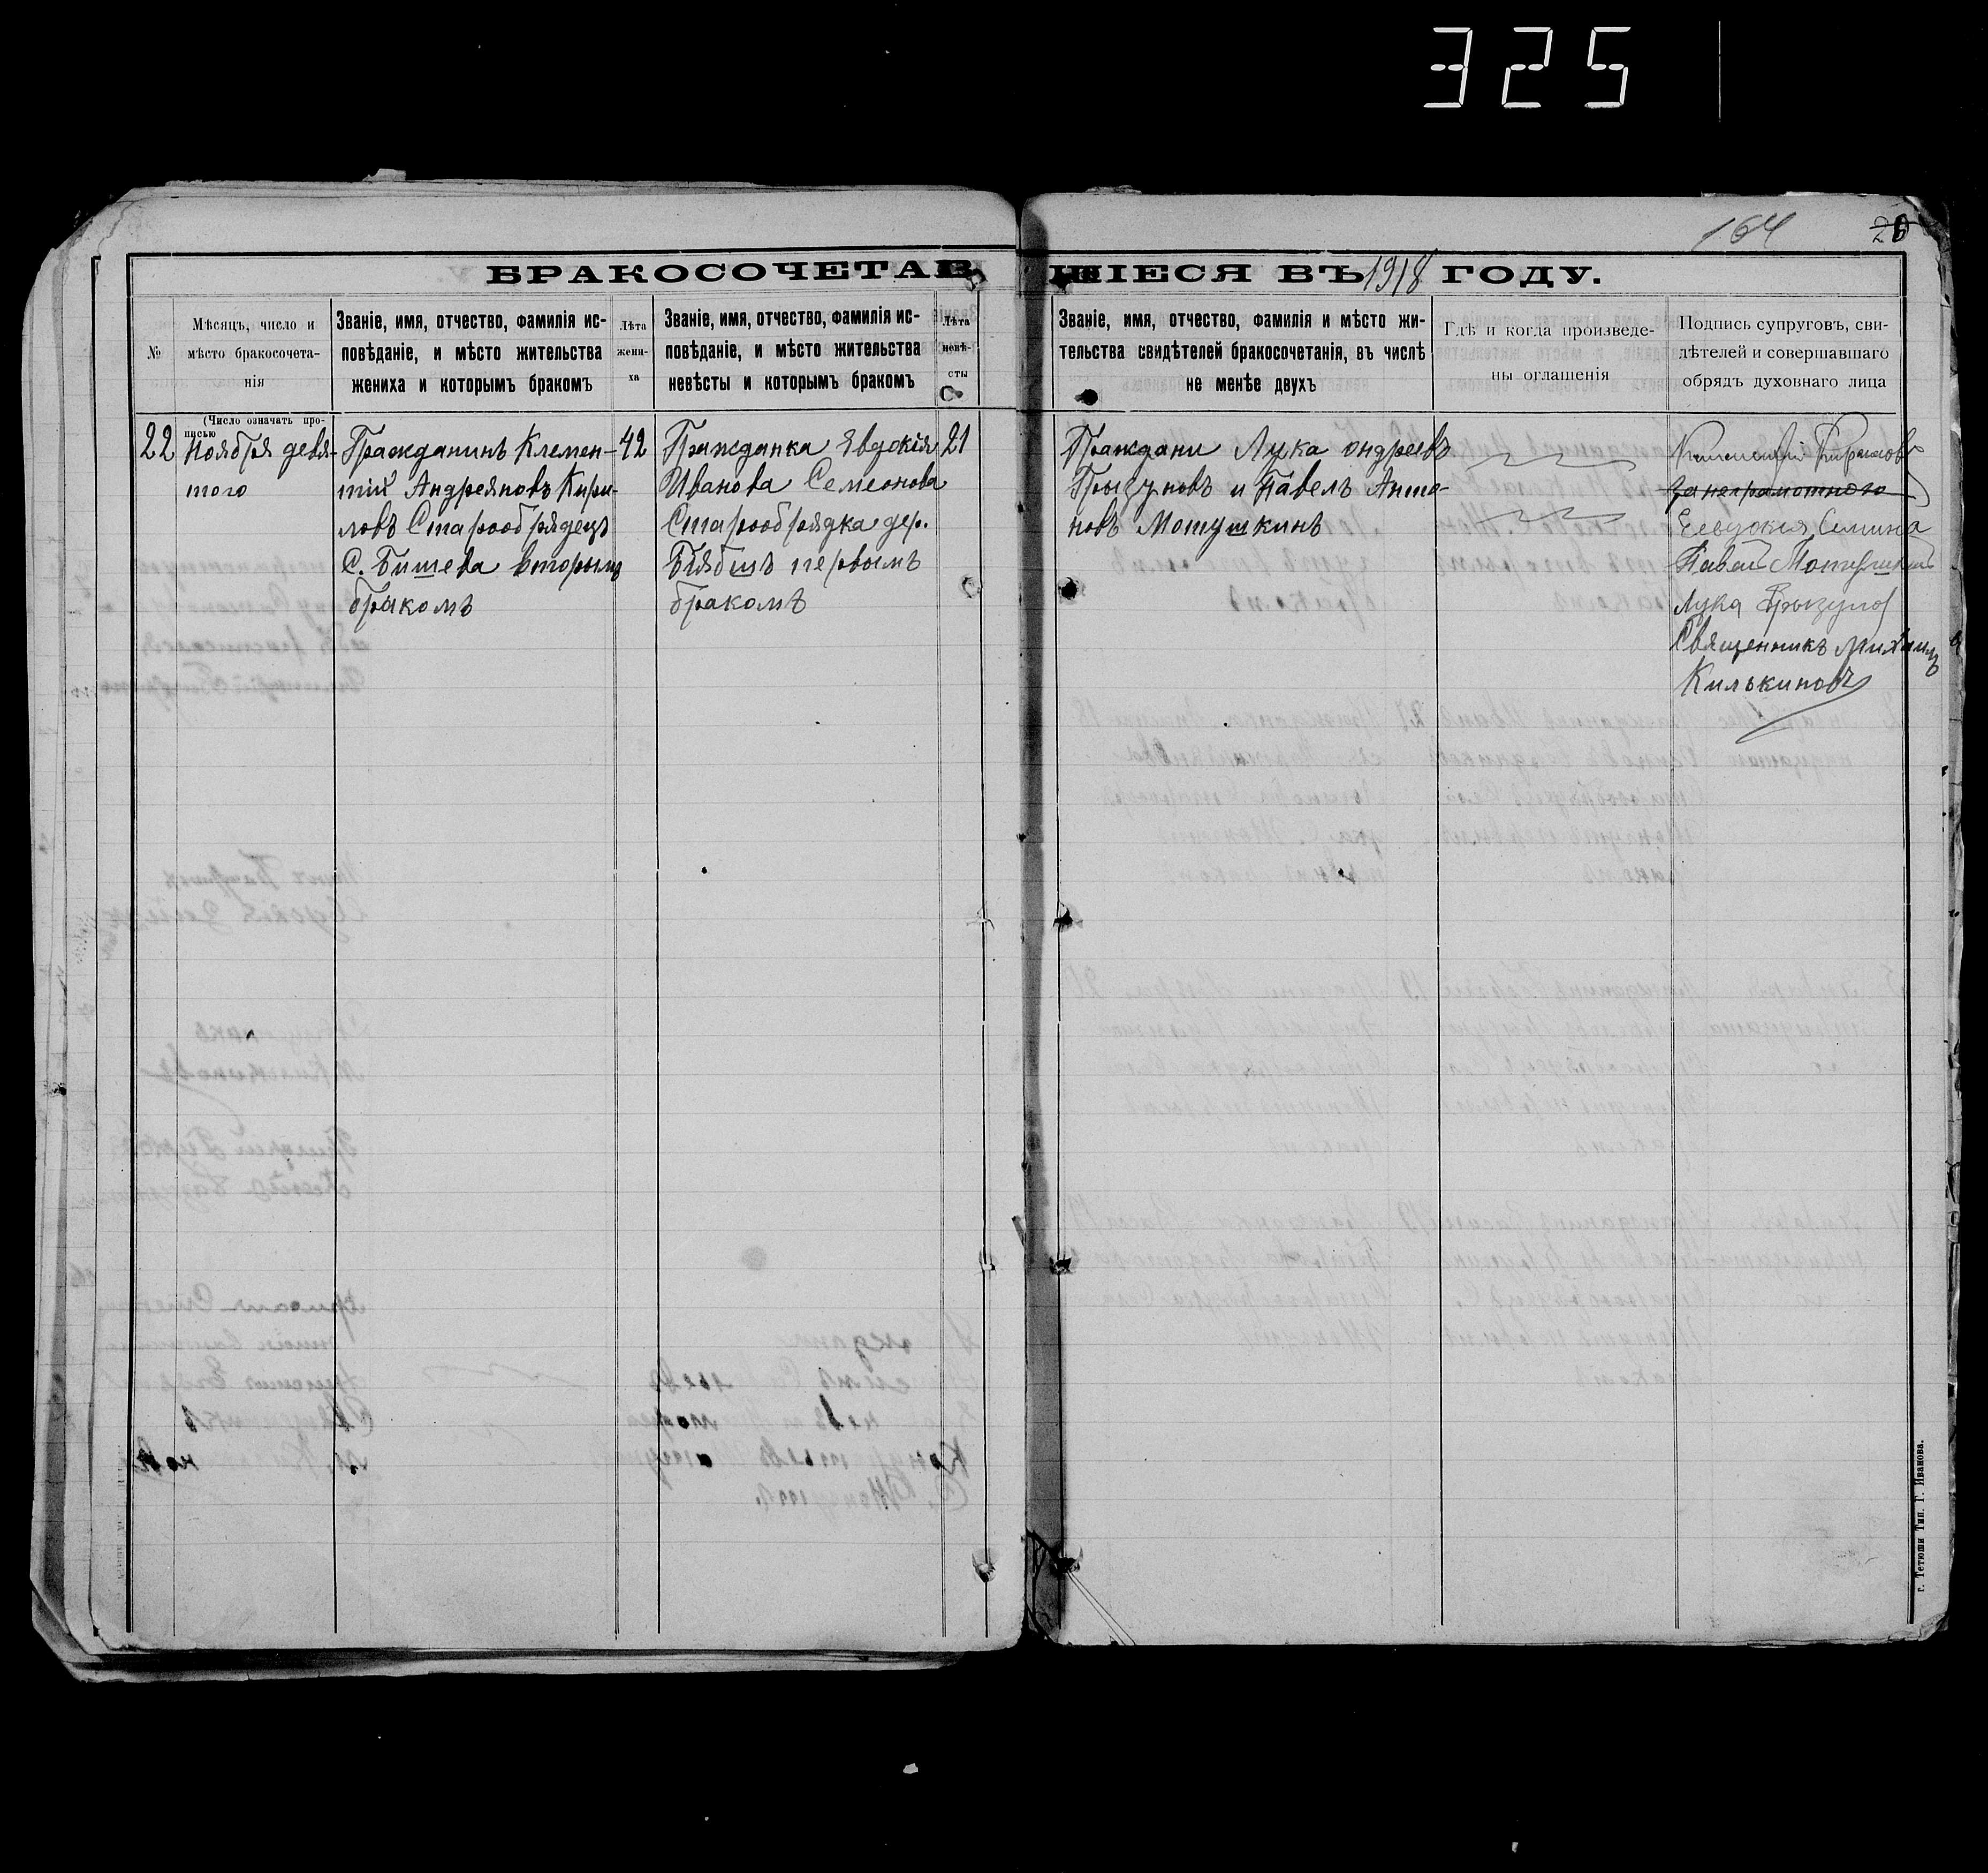 325
164
26
БРАКОСОЧЕТАВШІЕСЯ ВЪ 1918 ГОДУ.
№
Мѣсяцъ, число и
мѣсто бракосочета-
нія
Званіе, имя, отчество, фамилія ис-
повѣданіе, и мѣсто жительства
жениха и которымъ бракомъ
Лѣта
жени-
ха
Званіе, имя, отчество, фамилія ис-
повѣданіе, и мѣсто жительства
невѣсты и которымъ бракомъ
Лѣта
невѣ-
сты
Званіе, имя, отчество, фамилія и мѣсто жи-
тельства свидѣтелей бракосочетанія, въ числѣ
не менѣе двухъ
Гдѣ и когда произведе-
ны оглашенія
Подпись супруговъ, сви-
дѣтелей и совершавшаго
обрядъ духовнаго лица
(Число означать про-
писью
22
Ноября девя-
того
Гражданинъ Клемен-
тий Андреяновъ Кири-
ловъ Старообрядецъ
С. Бишева вторымъ
бракомъ
42
Гражданка Явдокія
Иванова Семеонова
Старообрядка дер.
Бябишъ первымъ
бракомъ
21
Граждани Лука ондреевъ
Грызуновъ и Павелъ Анто-
новъ Мотушкинъ
Кирилловъ
за неграмотного
Евдокия Семина
Павел Мотушкин
Лука Грызунов
Священникъ Михаилъ
Килькиновъ
г. Тетюши Тип. Г. Иванова.